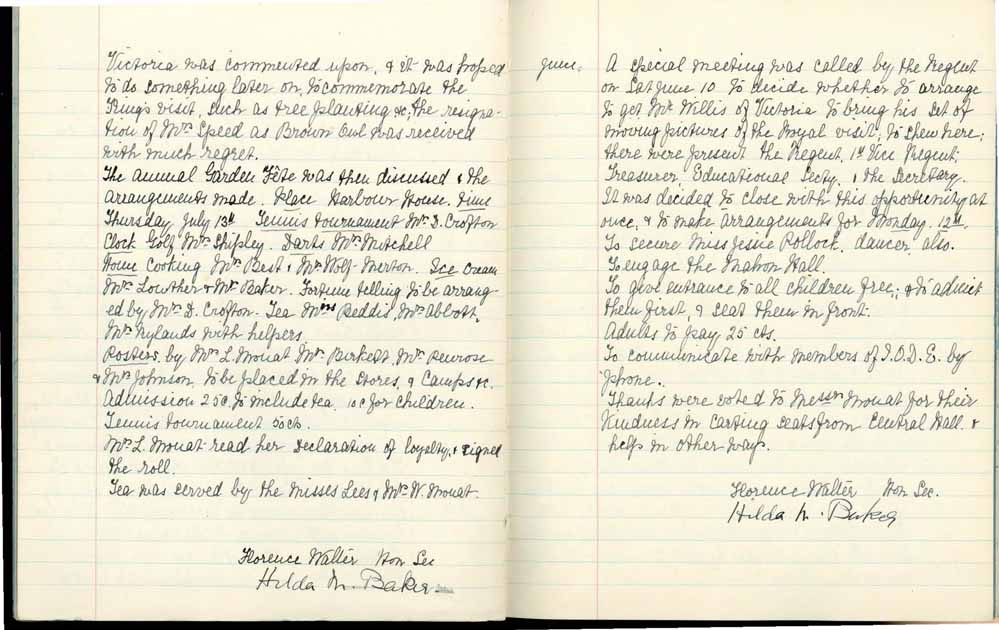 Victoria was commented upon, & it was hoped
to do something later on, to commemorate the
King's visit, such as tree planting &c; the resigna-
tion of Mrs Speed as Brown Owl was received
with much regret.
The annual Garden Fête was then discussed & the
arrangements made. Place Harbour House. time
Thursday July 13th Tennis tournament Mr. D. Crofton
Clock Golf Mrs Shipley. Darts Mrs Mitchell
Home Cooking Mrs Best & Mrs Wolf-Merton. Ice Cream
Mrs Lowther & Mrs Baker. Fortune telling to be arrang-
ed by Mrs D. Crofton. Tea Mrs Reddis, Mrs Abbott,
Mrs Rylands with helpers.
Posters, by Mrs L. Mouat Mrs Birkett, Mrs Penrose
& Mrs Johnson, to be placed in the Stores, & Camps &c.
Admission 25c. to include tea. 10c for children.
Tennis tournament 50cts.
Mrs L. Mouat read her Declaration of loyalty, & signed
the roll.
Tea was served by the Misses Lees & Mrs W. Mouat.
Florence Walter Hon Sec
Hilda M. Baker
June. A special meeting was called by the Regent
on Sat June 10 to decide whether to arrange
to get Mr Willis of Victoria to bring his set of
moving pictures of the Royal visit, to shew here;
there were present the Regent, 1st Vice Regent;
Treasurer, Educational Secty. & the Secretary.
It was decided to close with this opportunity at
once, & to make arrangements for Monday. 12th.
To secure Miss Jessie Pollock, dancer, also.
To engage the Mahon Hall.
To give entrance to all children free; & to admit
them first, & seat them in front.
Adults to pay 25 cts.
To communicate with members of I.O.D.E. by
'phone.
Thanks were voted to Messrs Mouat for their
kindness in carting seats from Central Hall &
help in other ways.
Florence Walter Hon Sec.
Hilda M. Baker